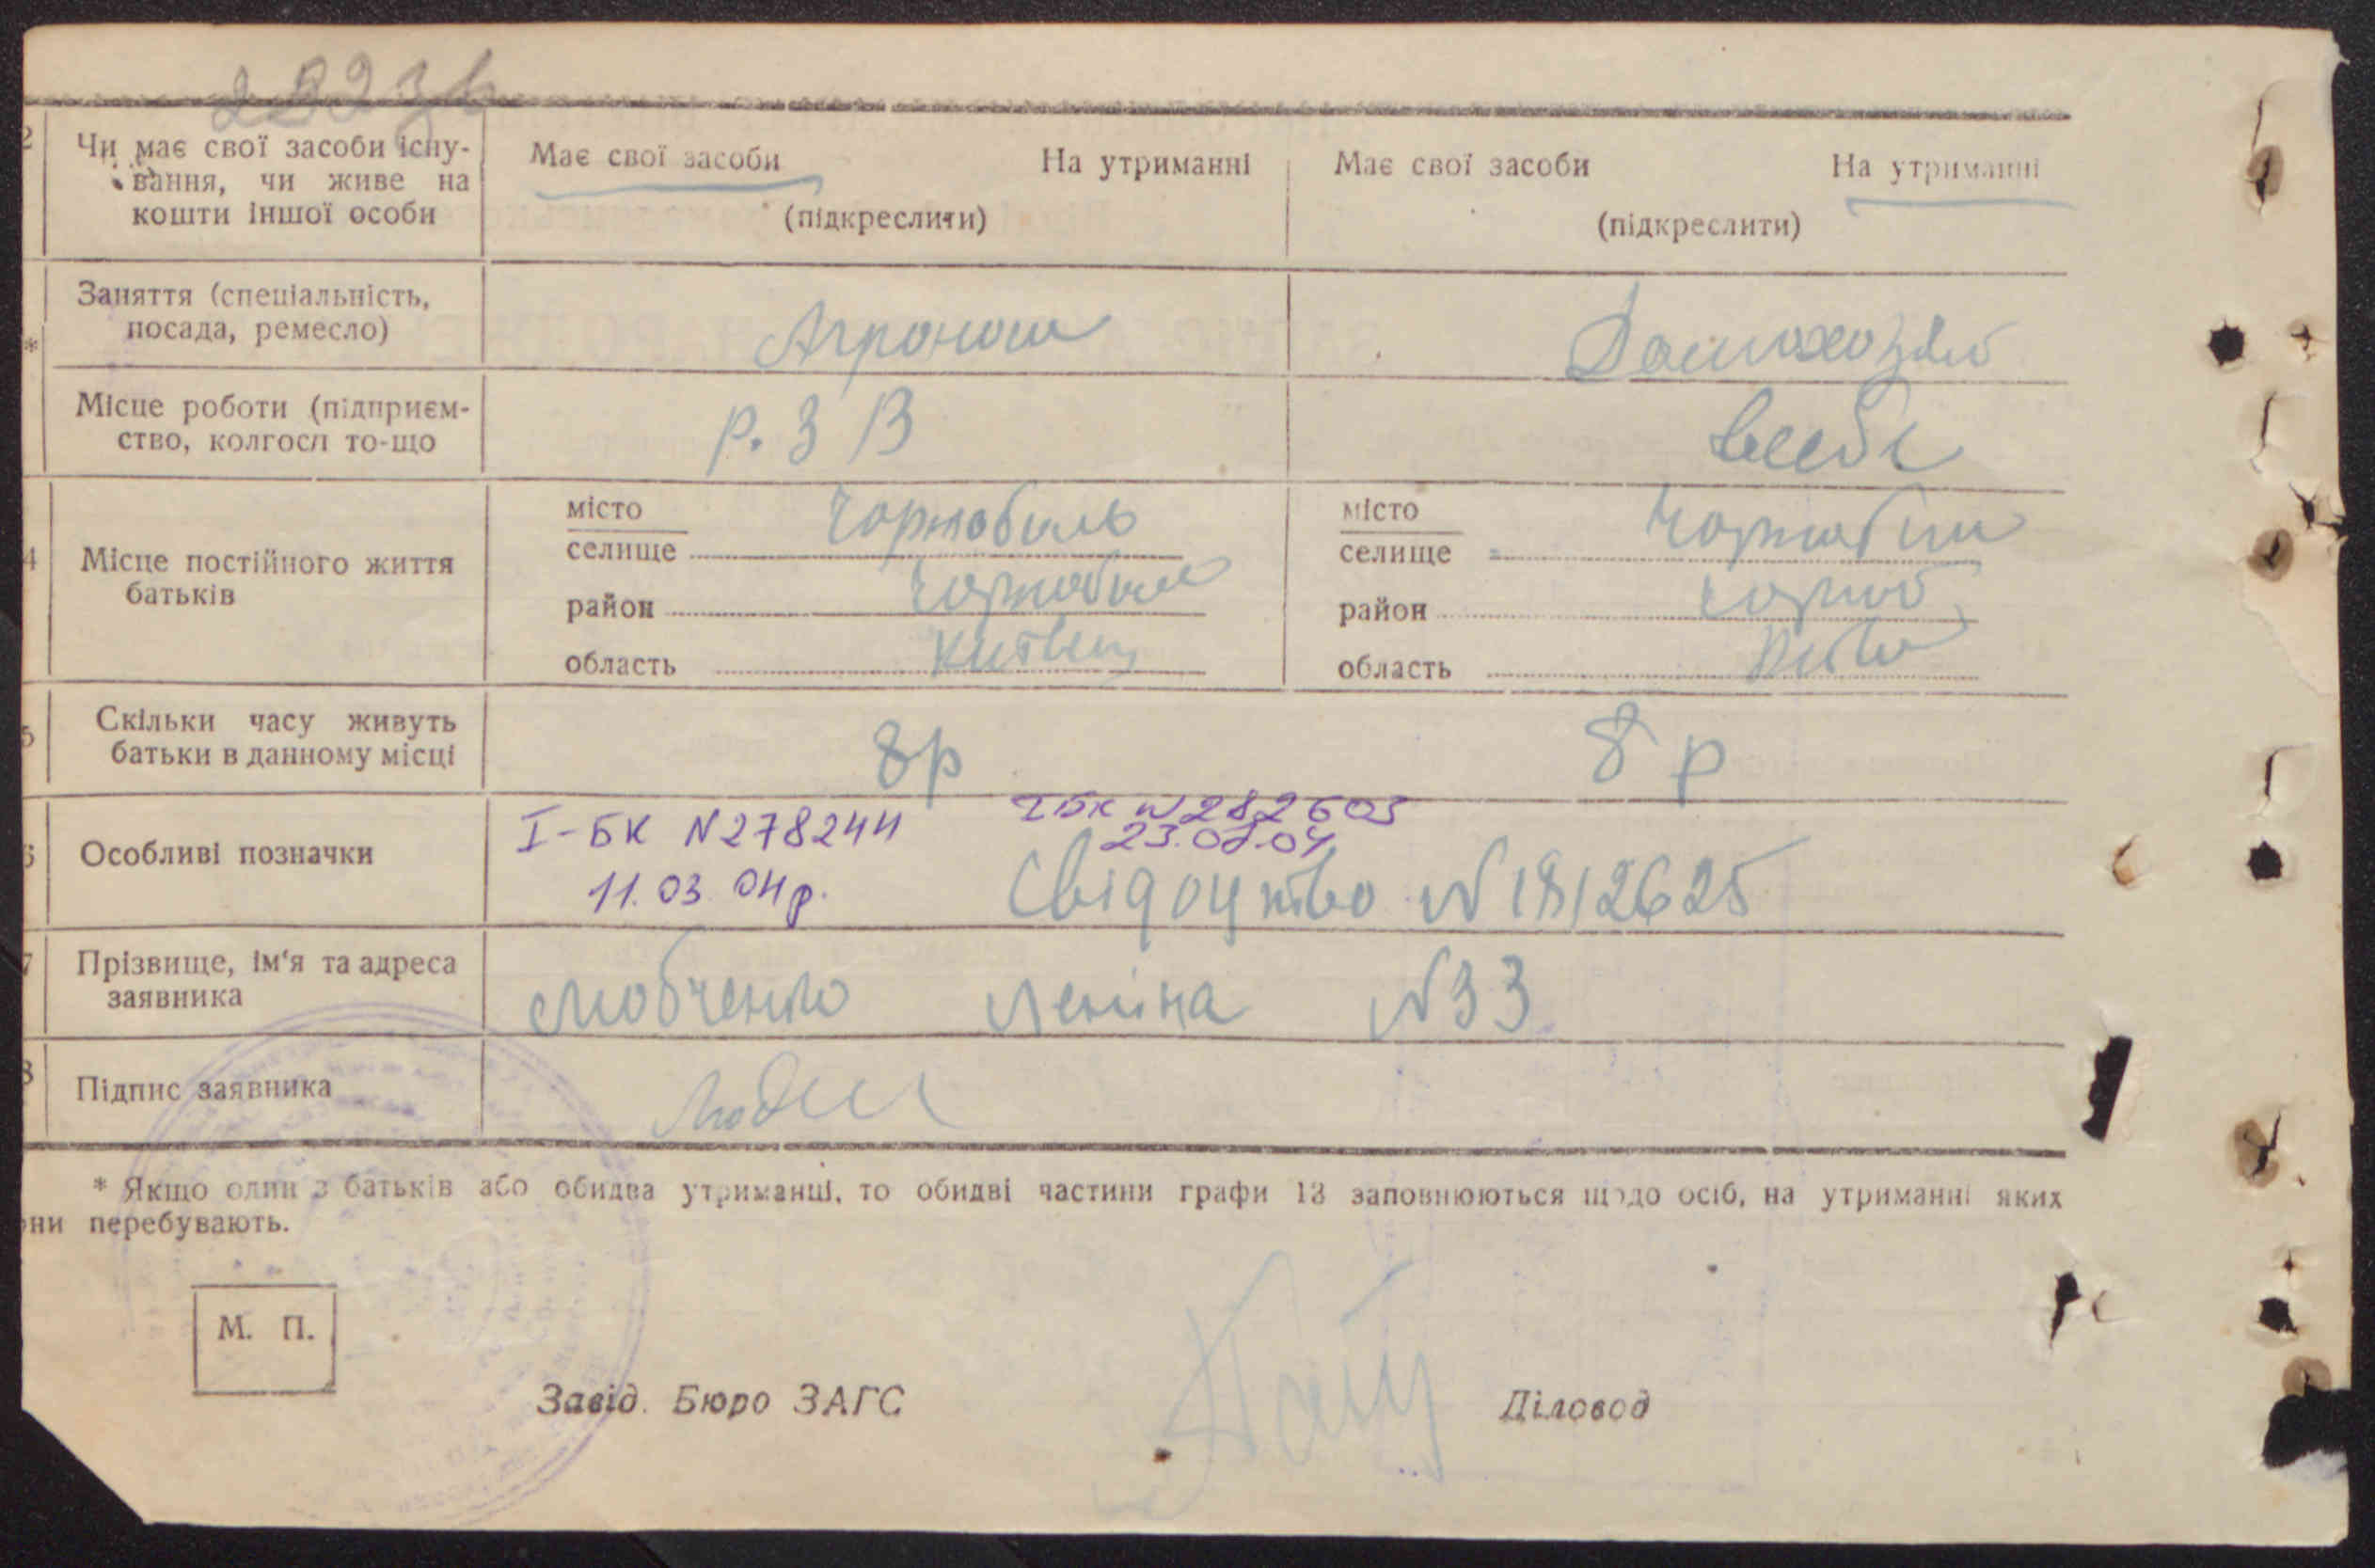 2
Чи має свої засоби існу-
вання, чи живе на
кошти іншої особи
Має свої засоби На утриманні
(підкреслити)
Має свої засоби На утриманні
(підкреслити)
*
Заняття (спеціальність,
посада, ремесло)
Агроном
Домохозяй
Місце роботи (підприєм-
ство, колгосп то-що
Р. З В
4
Місце постійного життя
батьків
місто
селище
Чорнобиль
район
область
місто
селище
район
область
5
Скільки часу живуть
батьки в данному місці
8р
8 р
6
Особливі позначки
I-БК N278244
11.03.04р.
IБК N282603
Свідоцтво №1812625
7
Прізвище, ім'я та адреса
заявника
Леніна №33
8
Підпис заявника
* Якщо один з батьків або обидва утриманці, то обидві частини графи 13 заповнюються щодо осіб, на утриманні яких
они перебувають.
М. П.
Завід. Бюро ЗАГС
Діловод